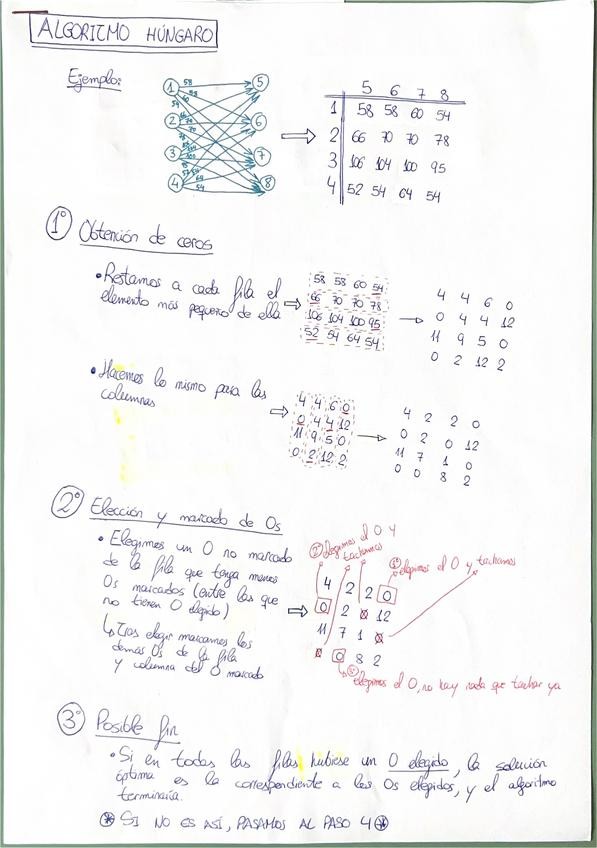 ALGORITMO HÚNGARO
Ejemplo:
1 58 5
60
54
2 66 6
70
70
78
3 100 7
4 64 8
54
5 6 7 8
1 58 58 60 54
2 66 70 70 78
3 106 104 100 95
4 52 54 64 54
1º Obtención de ceros
• Restamos a cada fila el
elemento más pequeño de ella
58 58 60 54
66 70 70 78
106 104 100 95
52 54 64 54
4 4 6 0
0 4 4 12
11 9 5 0
0 2 12 2
• Hacemos lo mismo para las
columnas
4 4 6 0
0 4 4 12
11 9 5 0
0 2 12 2
4 2 2 0
0 2 0 12
11 7 1 0
0 0 8 2
2º Elección y marcado de 0s
• Elegimos un 0 no marcado
de la fila que tenga menos
0s marcados (entre las que
no tienen 0 elegido)
Tras elegir marcamos los
demás 0s de la fila
y columna del 0 marcado
2º elegimos el 0 y
tachamos
1º elegimos el 0 y tachamos
4 2 2 0
0 2 0 12
11 7 1 0
0 0 8 2
3º elegimos el 0, no hay nada que tachar ya
3º Posible fin
• Si en todas las filas hubiese un 0 elegido, la solución
óptima es la correspondiente a los 0s elegidos, y el algoritmo
terminaría.
* SI NO ES ASÍ, PASAMOS AL PASO 4 *